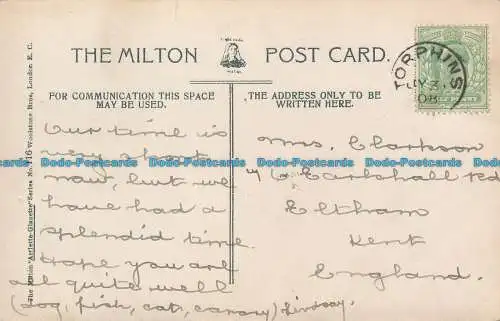 THE MILTON POST CARD.
FOR COMMUNICATION THIS SPACE
MAY BE USED.
THE ADDRESS ONLY TO BE
WRITTEN HERE.
TORPHINS
JY 3
08
The Milton "Artlette-Glazette" Series No. 116 Woolstone Bros., London E. C.
Our time is
very short
now, but we
have had a
splendid time.
Hope you are
all quite well
(dog, fish, cat, canary) Lindsay.
Mrs. Clarkson
Earlshall Rd
Eltham
Kent
England.
Postcards-Collectables